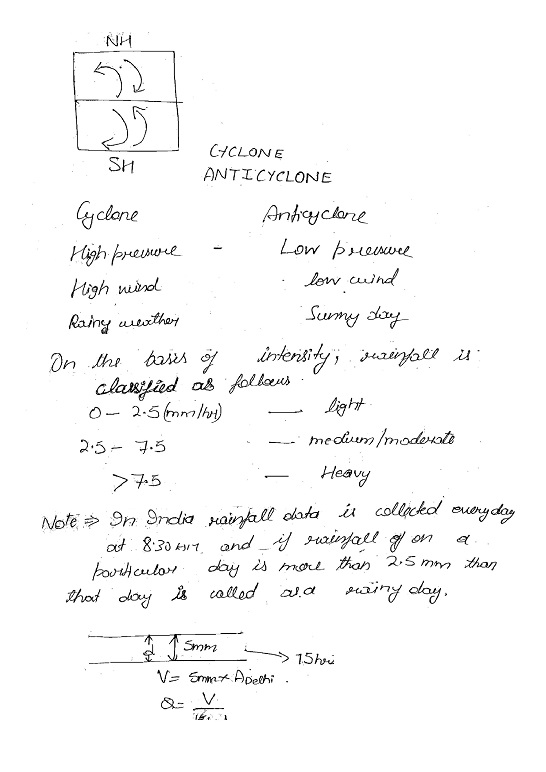 NH
SH
CYCLONE
ANTICYCLONE
Cyclone Anticyclone
High pressure - Low pressure
High wind low wind
Rainy weather Sunny day
On the basis of intensity, rainfall is
classified as follows.
0 - 2.5 (mm/hr) — light
2.5 - 7.5 — medium/moderate
>7.5 — Heavy
Note ⇒ In India rainfall data is collected everyday
at 8:30 and if rainfall of on a
particular day is more than 2.5 mm than
that day is called as a rainy day.
5mm
V = 5mm × A Delhi .
Q = V